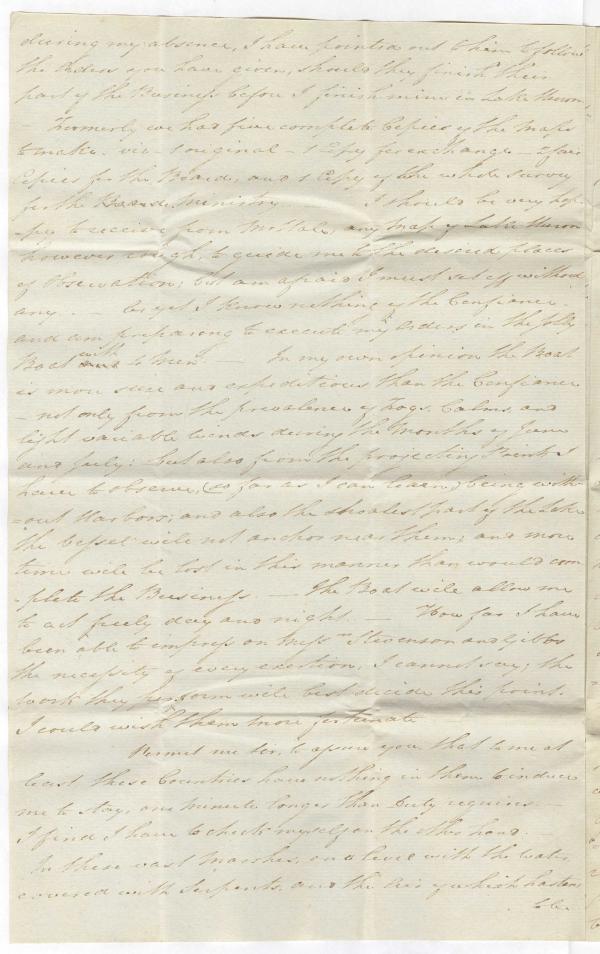 during my absence, I have pointed out to him to follow
the Orders you have given, should they finish their
part of the Business before I finish mine in Lake Huron
– Formerly we had five complete Copies of the Maps
to make. viz – 1 original – 1 Copy for exchange – 2 fair
Copies for the Board, and 1 Copy of the whole survey
for the Ministry. I should be very hap-
-py to receive from any Map of Lake Huron
however rough, to guide me to the desired places
of Observation; but am afraid I must set off without
any. – As yet I know nothing of the Confiance.
and am preparing to execute my Orders in the Jolly
Boat with 10 Men. – In my own opinion the Boat
is more sure and expeditious than the Confiance
– not only from the prevalence of Fogs, Calms, and
light variable Winds during the Months of June
and July: but also from the projecting Points I
have to observe, (so far as I can learn) being with-
-out Harbors; and also the shoalest part of the Lake
the Vessel will not anchor near them; and more
time will be lost in this manner than would com
-plete the Business. – The Boat will allow me
to act freely day and night. – How far I have
been able to impress on Messrs Stevenson and Gibbs
the necessity of every exertion, I cannot say; the
work they perform will best decide this point.
I could wish them more fortunate
Permit me Sir, to assure you that to me at
least these Countries have nothing in them to induce
me to stay, one minute longer than Duty requires. –
I find I have to check myself on the other hand.
In these vast Marshes, on a level with the water,
covered with Serpents, and the Air of which hastens